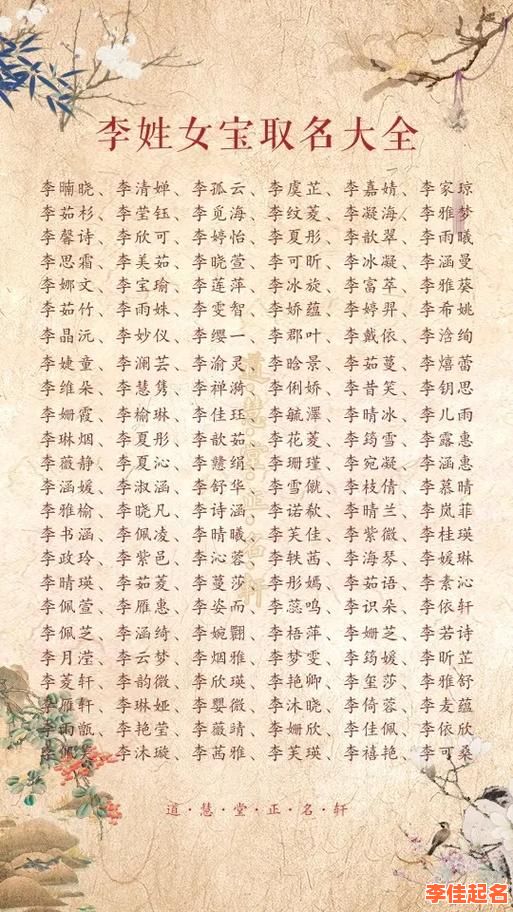 李姓女宝取名大全
李喃晓、李清婵、李孤云、李虞芷、李嘉婧、李家琼
李茹杉、李莹钰、李觅海、李纹菱、李凝海、李雅梦
李馨诗、李欣可、李婷怡、李夏彤、李歆翠、李雨曦
李思霜、李美茹、李晓萱、李可昕、李冰凝、李涵曼
李娜文、李宝瑜、李莲萍、李冰旋、李富萃、李雅葵
李茹竹、李雨姝、李雯智、李娇蕴、李婷羿、李希姚
李晶沅、李妙仪、李缨一、李郡叶、李戴依、李浛绚
李婕童、李澜芸、李渝灵、李晗景、李茹蔓、李熺蕾
李维朵、李慧隽、李禅漪、李俐娇、李昔笑、李钥思
李姗霞、李榆琳、李佳珏、李毓澤、李晴冰、李儿雨
李琳烟、李夏彤、李歆茹、李花菱、李筠雪、李露惠
李薇静、李夏沁、李戆绢、李珊瑾、李宛凝、李涵惠
李涵媛、李淑涵、李舒华、李雪僦、李枝倩、李慕晴
李雅榆、李晓凡、李诗涵、李诺欷、李晴兰、李岚菲
李书涵、李佩凌、李晴曦、李芙佳、李紫微、李桂瑛
李政玲、李紫邑、李沁蓉、李轶茜、李海琴、李媛琳
李晴瑛、李茹菱、李蔓莎、李彤嫣、李茹语、李素沁
李佩萱、李雁惠、李姿而、李蕊鸣、李识朵、李依轩
李佩芝、李涵绮、李婉翾、李梧萍、李姗芝、李若诗
李月滢、李云梦、李烟雅、李梦雯、李筠媛、李昕芷
李菱轩、李韵微、李欣瑛、李艳卿、李玺莎、李雅舒
李雁轩、李琳娅、李婴微、李沐晓、李倚蓉、李麦蕴
李雨甑、李艳莹、李薇靖、李姗欣、李佳佩、李依欣
李佩、李沐璇、李茜雅、李芙瑛、李禧艳、李可桑
道·慧·堂·正·名·轩
李佳起名